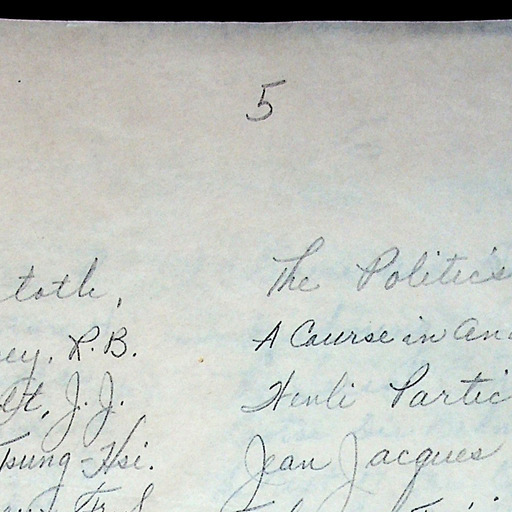 5
totle, The Politics
ey, R.B. A Course in Ana
tt, J.J. Henli Partic
Tsung-Hsi. Jean Jacques